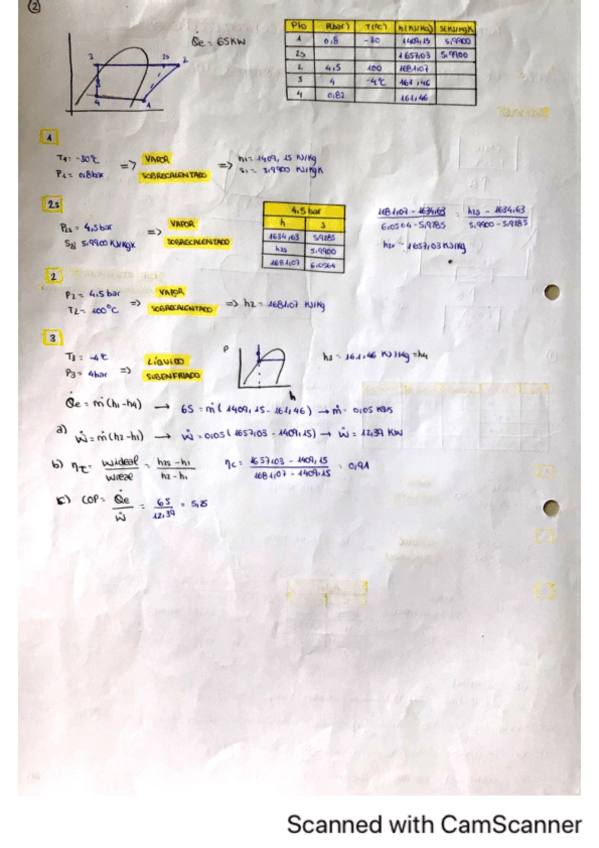 ②
3 2s 2
4 1
Q̇e = 65 KW
Pto P(bar) T(ºC) h(KJ/Kg) S(KJ/KgK)
1 0,8 -30 1409,15 5,9900
2s 1657,03 5,9900
2 4,5 100 1681,07
3 4 -4ºC 161,46
4 0,82 161,46
1
T1 = -30ºC => VAPOR => h1 = 1409,15 KJ/Kg
P1 = 0,8bar SOBRECALENTADO s1 = 5,9900 KJ/KgK
2s
P2s = 4,5 bar => VAPOR
S2s 5,9900 KJ/KgK SOBRECALENTADO
4,5 bar
h s
1634,63 5,9285
h2s 5,9900
1681,07 6,0564
1681,07 - 1634,63 / 6,0564 - 5,9285 = h2s - 1634,63 / 5,9900 - 5,9285
h2s = 1657,03 KJ/Kg
2
P2 = 4,5 bar => VAPOR
T2 = 100ºC SOBRECALENTADO => h2 = 1681,07 KJ/Kg
3
T3 = -4ºC LÍQUIDO
P3 = 4bar => SUBENFRIADO
P
h
h3 = 161,46 KJ/Kg = h4
Q̇e = ṁ(h1-h4) → 65 = ṁ(1409,15 - 161,46) → ṁ = 0,05 Kg/s
a) Ẇ = ṁ(h2-h1) → Ẇ = 0,05(1657,03 - 1409,15) → Ẇ = 12,39 KW
b) ηc = Wideal / Wreal = h2s - h1 / h2 - h1 ηc = 1657,03 - 1409,15 / 1681,07 - 1409,15 = 0,91
c) COP = Q̇e / Ẇ = 65 / 12,39 = 5,25
Scanned with CamScanner